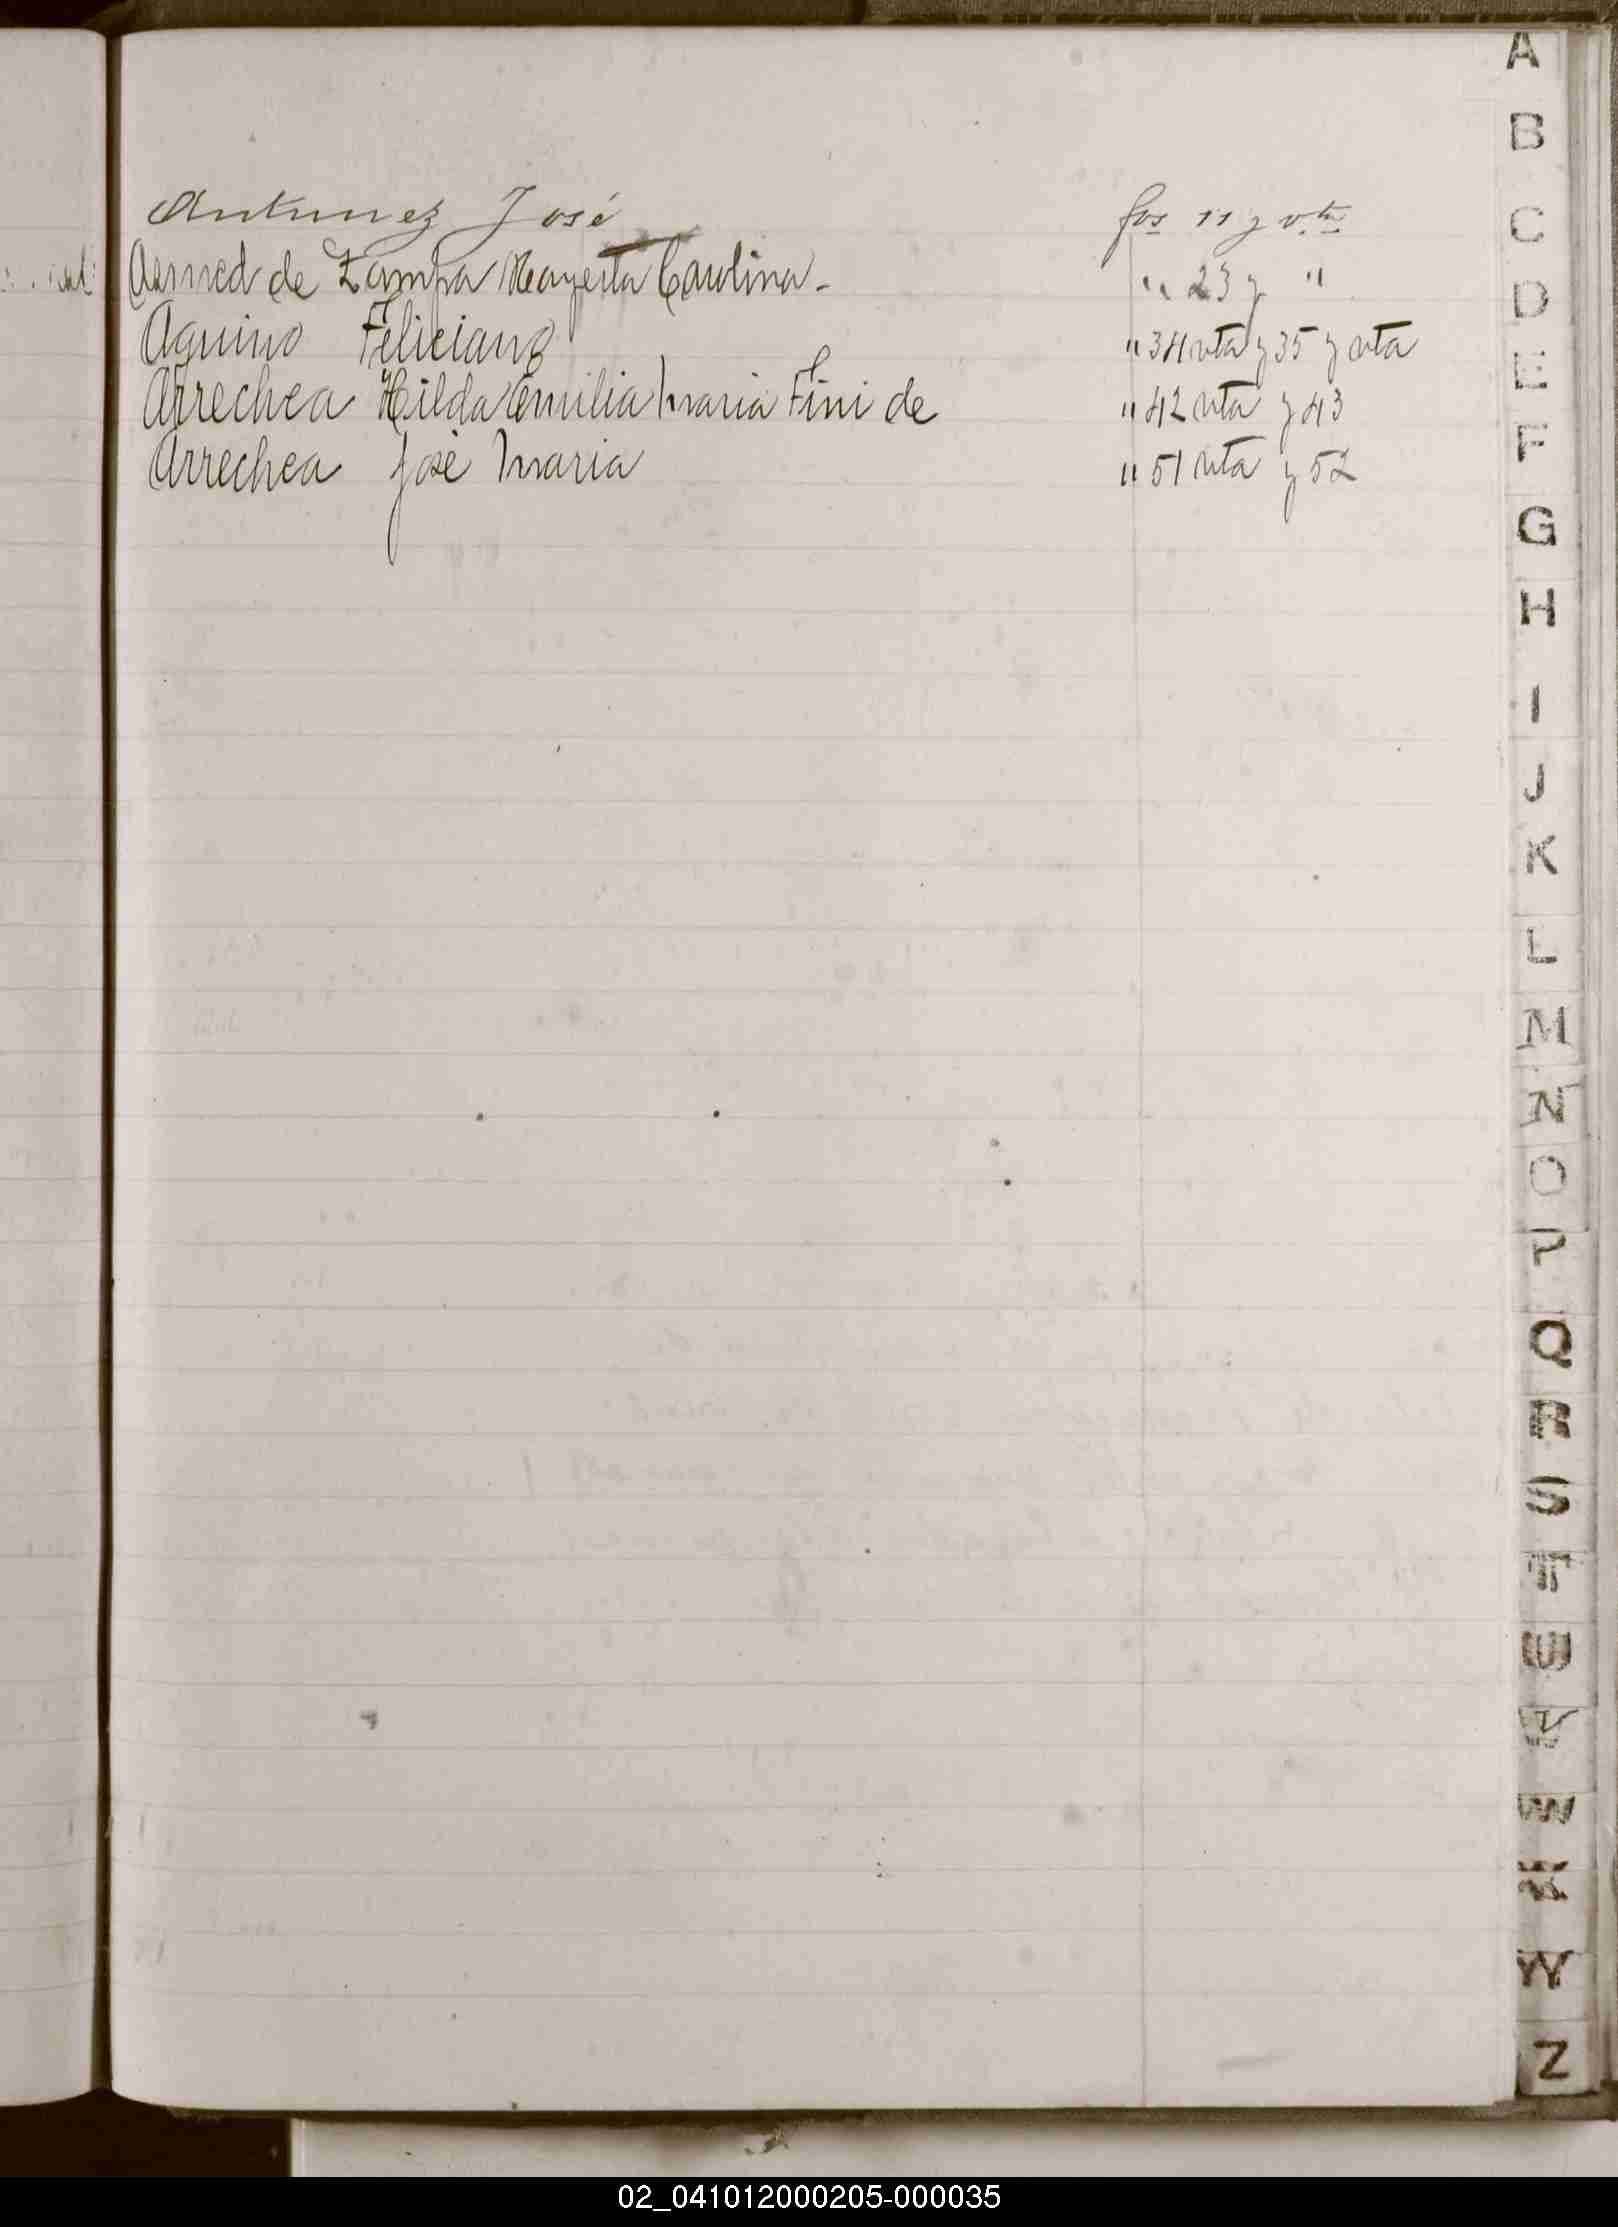 Antunez José fos 11 y vta
de Zampa Carolina - " 23 y "
Aquino Feliciano " 34 vta y 35 y vta
Arrechea Hilda Emilia Maria Fini de " 42 vta y 43
Arrechea José Maria " 51 vta y 52
A
B
C
D
E
F
G
H
I
J
K
L
M
N
O
P
Q
R
S
T
U
V
W
X
Y
Z
02_041012000205-000035